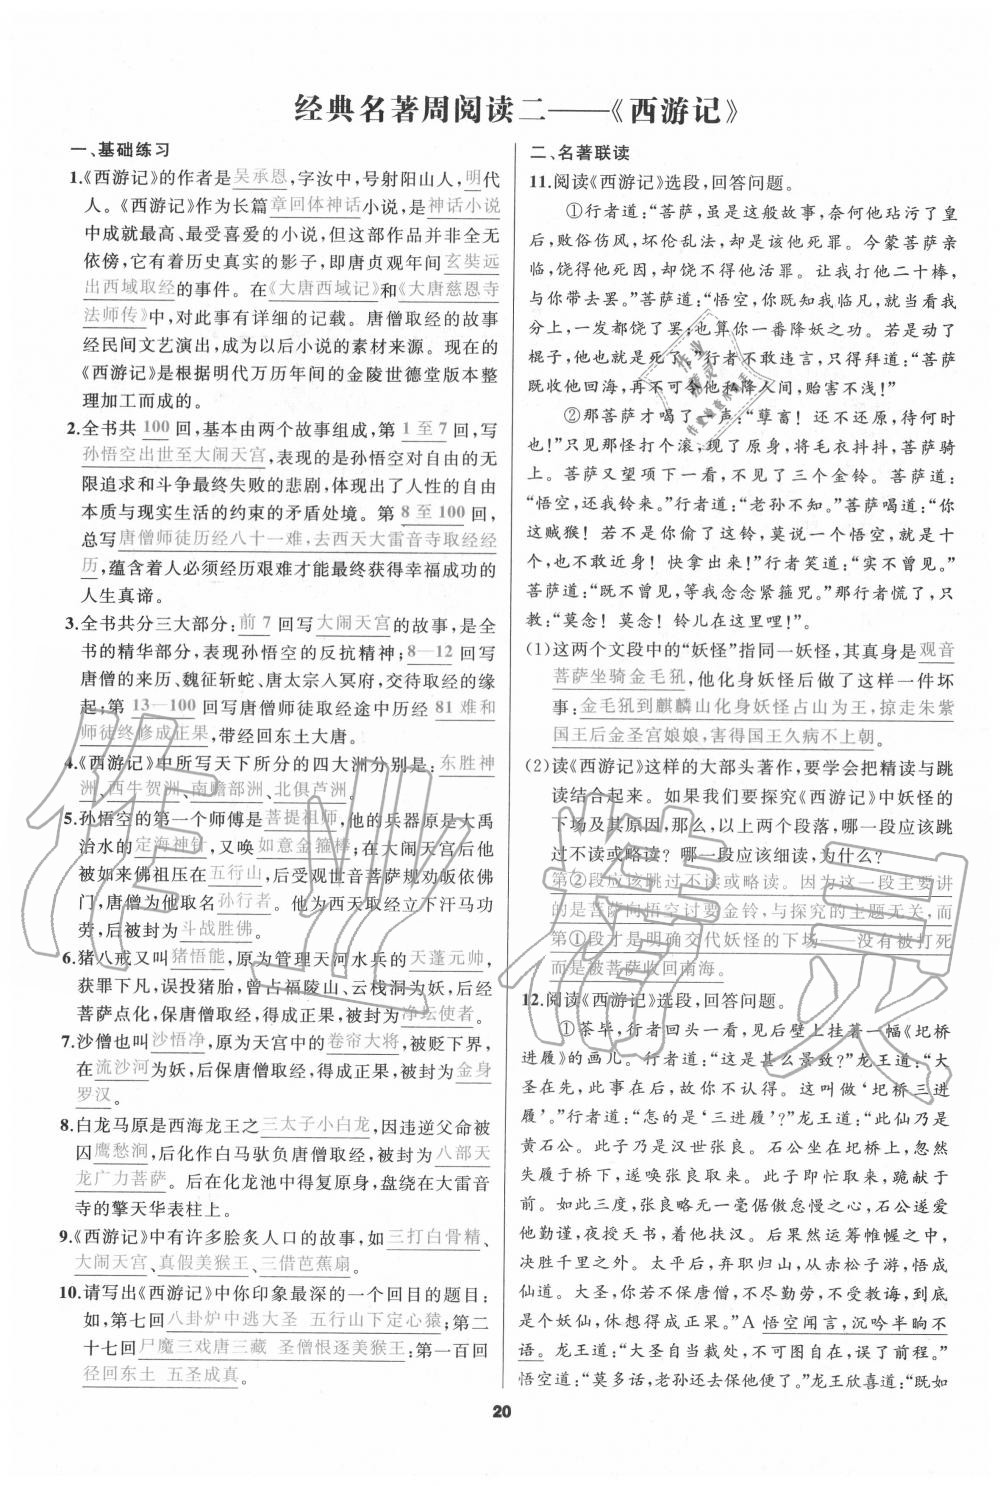 经典名著周阅读二——《西游记》
一、基础练习
1.《西游记》的作者是吴承恩,字汝中,号射阳山人,明代
人。《西游记》作为长篇章回体神话小说,是神话小说
中成就最高、最受喜爱的小说,但这部作品并非全无
依傍,它有着历史真实的影子,即唐贞观年间玄奘远
出西域取经的事件。在《大唐西域记》和《大唐慈恩寺
法师传》中,对此事有详细的记载。唐僧取经的故事
经民间文艺演出,成为以后小说的素材来源。现在的
《西游记》是根据明代万历年间的金陵世德堂版本整
理加工而成的。
2.全书共 100 回,基本由两个故事组成,第 1 至 7 回,写
孙悟空出世至大闹天宫,表现的是孙悟空对自由的无
限追求和斗争最终失败的悲剧,体现出了人性的自由
本质与现实生活的约束的矛盾处境。第 8 至 100 回,
总写唐僧师徒历经八十一难,去西天大雷音寺取经经
历,蕴含着人必须经历艰难才能最终获得幸福成功的
人生真谛。
3.全书共分三大部分:前 7 回写大闹天宫的故事,是全
书的精华部分,表现孙悟空的反抗精神;8—12 回写
唐僧的来历、魏征斩蛇、唐太宗入冥府,交待取经的缘
起;第 13—100 回写唐僧师徒取经途中历经 81 难和
师徒终修成正果,带经回东土大唐。
4.《西游记》中所写天下所分的四大洲分别是:东胜神
洲、西牛贺洲、南赡部洲、北俱芦洲。
5.孙悟空的第一个师傅是菩提祖师,他的兵器原是大禹
治水的定海神针,又唤如意金箍棒;在大闹天宫后他
被如来佛祖压在五行山,后受观世音菩萨规劝皈依佛
门,唐僧为他取名孙行者。他为西天取经立下汗马功
劳,被封为斗战胜佛。
6.猪八戒又叫猪悟能,原为管理天河水兵的天蓬元帅,
获罪下凡,误投猪胎,曾占福陵山、云栈洞为妖,后经
菩萨点化,保唐僧取经,得成正果,被封为净坛使者。
7.沙僧也叫沙悟净,原为天宫中的卷帘大将,被贬下界,
在流沙河为妖,后保唐僧取经,得成正果,被封为金身
罗汉。
8.白龙马原是西海龙王之三太子小白龙,因违逆父命被
囚鹰愁涧,后化作白马驮负唐僧取经,被封为八部天
龙广力菩萨。后在化龙池中得复原身,盘绕在大雷音
寺的擎天华表柱上。
9.《西游记》中有许多脍炙人口的故事,如三打白骨精、
大闹天宫、真假美猴王、三借芭蕉扇。
10.请写出《西游记》中你印象最深的一个回目的题目:
如,第七回八卦炉中逃大圣 五行山下定心猿;第二
十七回尸魔三戏唐三藏 圣僧恨逐美猴王;第一百回
径回东土 五圣成真。
二、名著联读
11.阅读《西游记》选段,回答问题。
①行者道:“菩萨,虽是这般故事,奈何他玷污了皇
后,败俗伤风,坏伦乱法,却是该他死罪。今蒙菩萨亲
临,饶得他死因,却饶不得他活罪。让我打他二十棒,
与你带去罢。”菩萨道:“悟空,你既知我临凡,就当看我
分上,一发都饶了罢;也算你一番降妖之功。若是动了
棍子,他也就是死了。”行者不敢违言,只得拜道:“菩萨
既收他回海,再不可令他私降人间,贻害不浅!”
②那菩萨才喝了一声:“孽畜!还不还原,待何时
也!”只见那怪打个滚,现了原身,将毛衣抖抖,菩萨骑
上。菩萨又望项下一看,不见了三个金铃。菩萨道:
“悟空,还我铃来。”行者道:“老孙不知。”菩萨喝道:“你
这贼猴!若不是你偷了这铃,莫说一个悟空,就是十
个,也不敢近身!快拿出来!”行者笑道:“实不曾见。”
菩萨道:“既不曾见,等我念念紧箍咒。”那行者慌了,只
教:“莫念!莫念!铃儿在这里哩!”。
(1)这两个文段中的“妖怪”指同一妖怪,其真身是观音
菩萨坐骑金毛犼,他化身妖怪后做了这样一件坏
事:金毛犼到麒麟山化身妖怪占山为王,掠走朱紫
国王后金圣宫娘娘,害得国王久病不上朝。
(2)读《西游记》这样的大部头著作,要学会把精读与跳
读结合起来。如果我们要探究《西游记》中妖怪的
下场及其原因,那么,以上两个段落,哪一段应该跳
过不读或略读?哪一段应该细读,为什么?
第②段应该跳过不读或略读。因为这一段主要讲
的是菩萨向悟空讨要金铃,与探究的主题无关,而
第①段才是明确交代妖怪的下场——没有被打死
而是被菩萨收回南海。
12.阅读《西游记》选段,回答问题。
①茶毕,行者回头一看,见后壁上挂着一幅《圯桥
进履》的画儿。行者道:“这是甚么景致?”龙王道:“大
圣在先,此事在后,故你不认得。这叫做‘圯桥三进
履’。”行者道:“怎的是‘三进履’?”龙王道:“此仙乃是
黄石公。此子乃是汉世张良。石公坐在圯桥上,忽然
失履于桥下,遂唤张良取来。此子即忙取来,跪献于
前。如此三度,张良略无一毫倨傲怠慢之心,石公遂爱
他勤谨,夜授天书,着他扶汉。后果然运筹帷幄之中,
决胜千里之外。太平后,弃职归山,从赤松子游,悟成
仙道。大圣,你若不保唐僧,不尽勤劳,不受教诲,到底
是个妖仙,休想得成正果。”A 悟空闻言,沉吟半晌不
语。龙王道:“大圣自当裁处,不可图自在,误了前程。”
悟空道:“莫多话,老孙还去保他便了。”龙王欣喜道:“既如
20